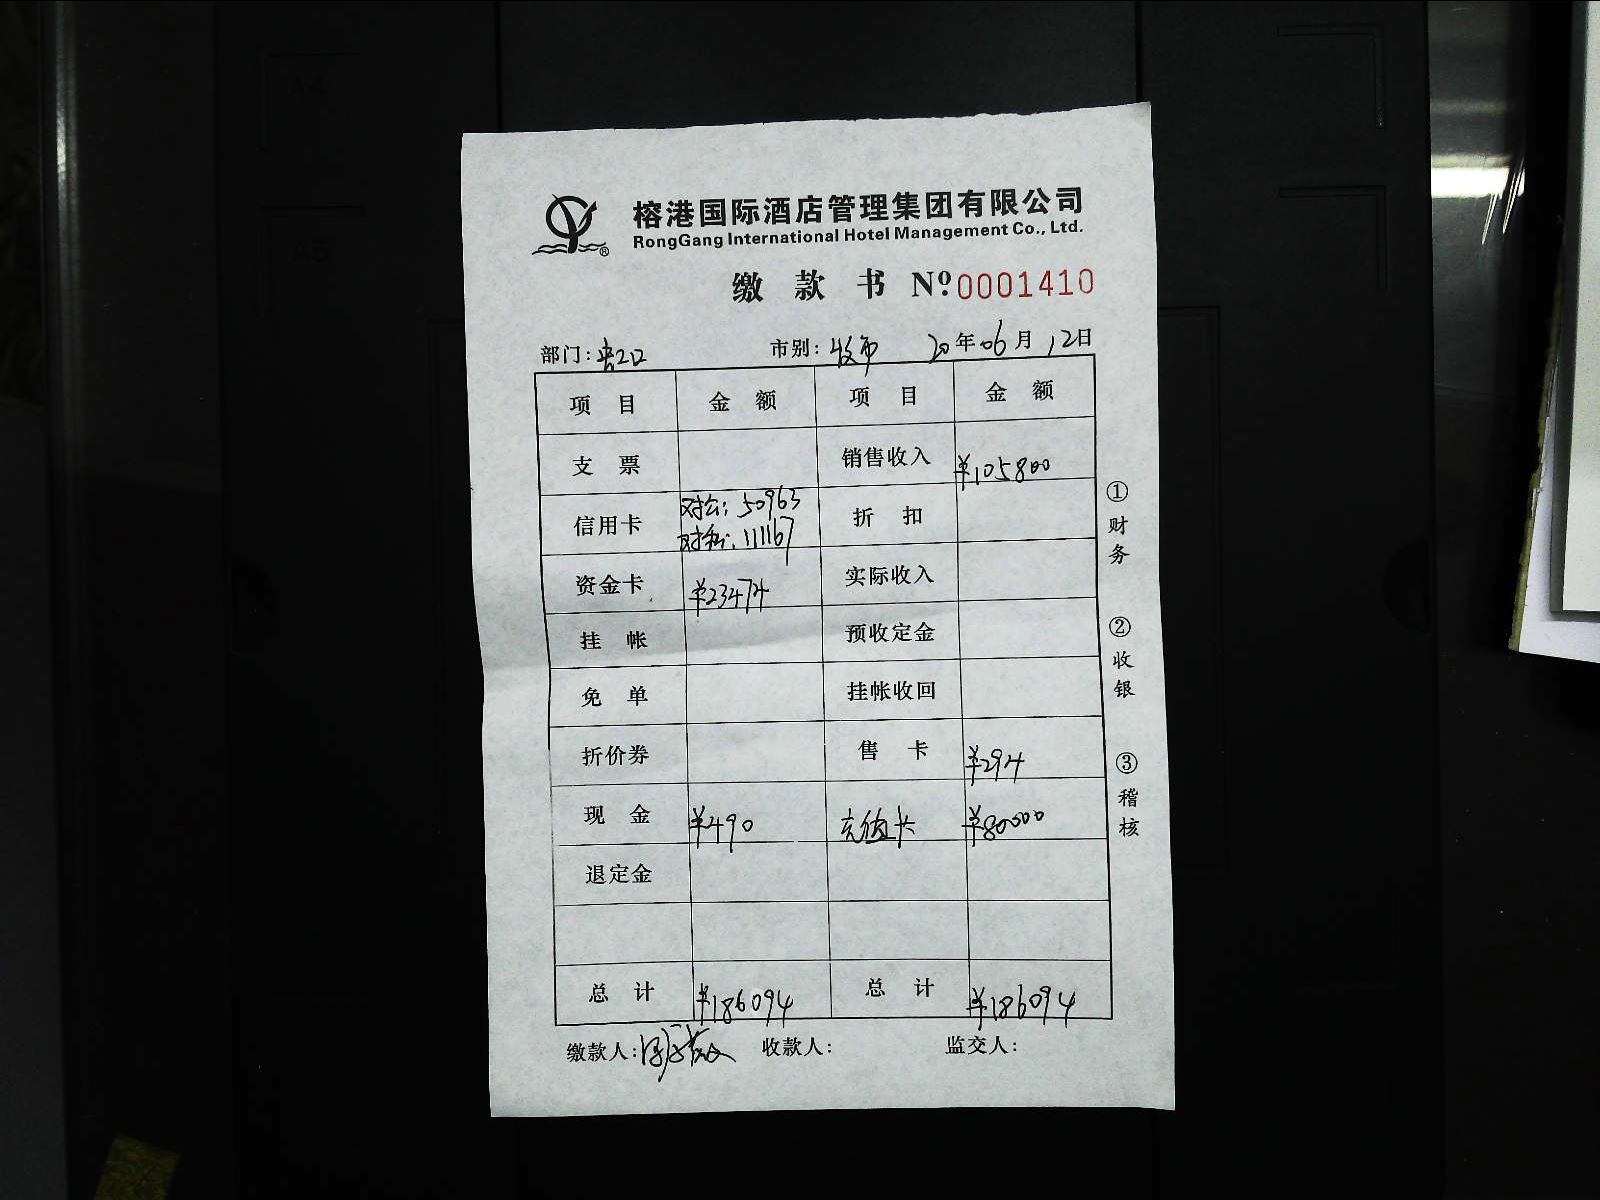 榕港国际酒店管理集团有限公司
RongGang International Hotel Management Co., Ltd.
缴款书 Nº0001410
部门: 市别: 收市 20年06月12日
项目 金额 项目 金额
支票 销售收入 ¥105800
信用卡 对公: 50963 折扣
对私: 111167
资金卡 ¥23474 实际收入
挂帐 预收定金
免单 挂帐收回
折价券 售卡 ¥294
现金 ¥490 充值卡 ¥80000
退定金
总计 ¥186094 总计 ¥186094
缴款人: 收款人: 监交人:
①财务
②收银
③稽核
®